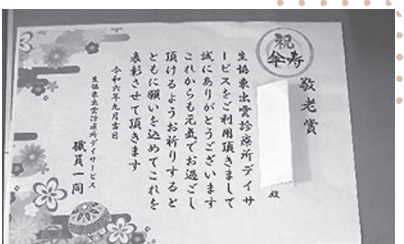 祝
傘寿
敬老賞
殿
生協東出雲診療所デイサ
ービスをご利用頂きまして
誠にありがとうございます
これからも元気でお過ごし
頂けるようお祈りすると
ともに願いを込めてこれを
表彰させて頂きます
令和六年九月吉日
生協東出雲診療所デイサービス
職員一同